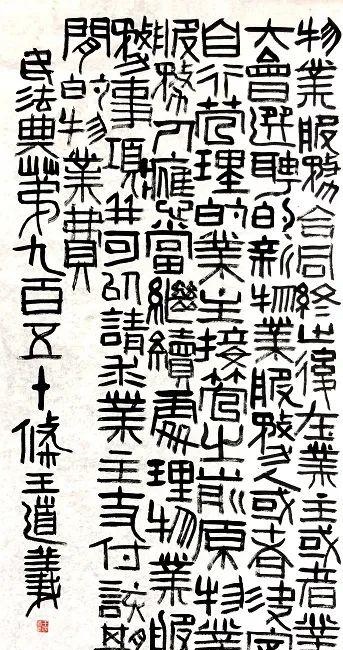 物業服務合同終止後在業主或者業
大會選聘的新物業服務人或者決定
自行管理的業主接管之前原物業
服務人應當繼續處理物業服
務事項並可以請求業主支付該期
間的物業費
民法典第九百五十條王道義